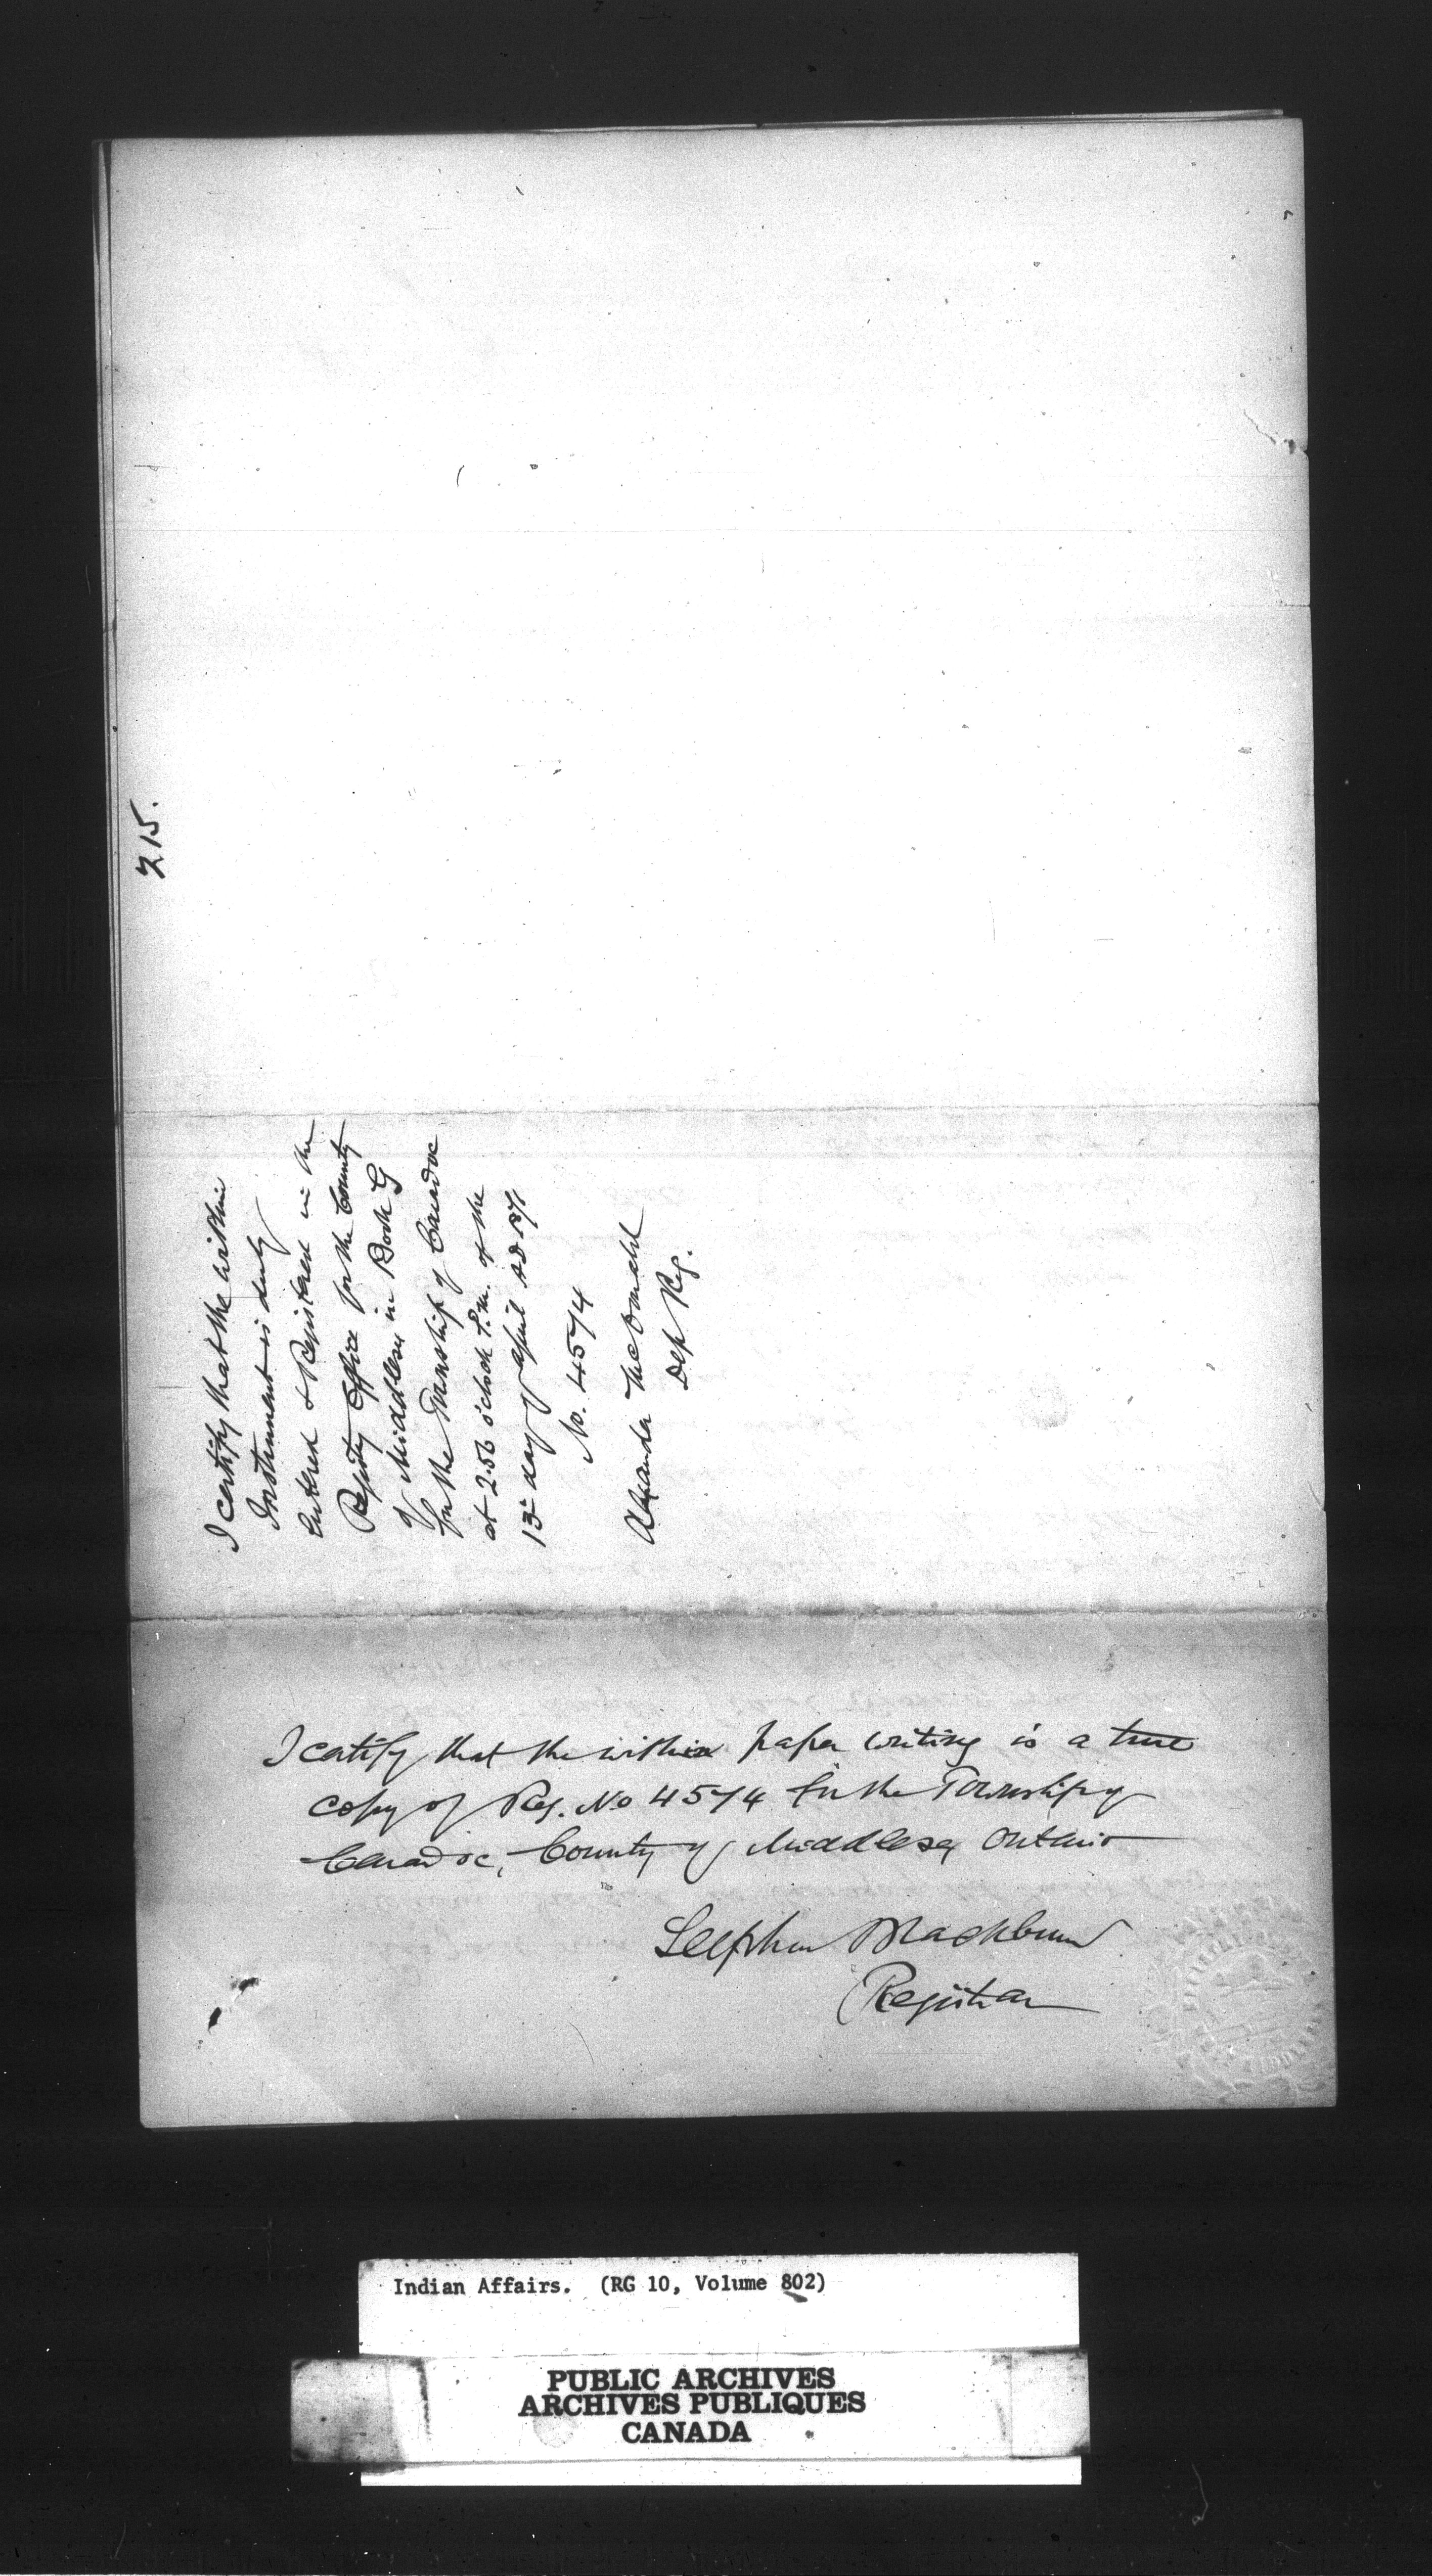 215.
I certify that the within
Instrument is duly
Entered & Registered in the
Registry Office for the County
of Middlesex in Book G
for the Township of Caradoc
at 2.56 o'clock P.M. of the
13th day of April AD 1871
No. 4574
Alexander McDonald
Dep Reg.
I certify that the within paper writing is a true
copy of Reg. No 4574 for the Township of
Caradoc, County of Middlesex Ontario
Stephen Blackburn
Registrar
Indian Affairs. (RG 10, Volume 802)
PUBLIC ARCHIVES
ARCHIVES PUBLIQUES
CANADA